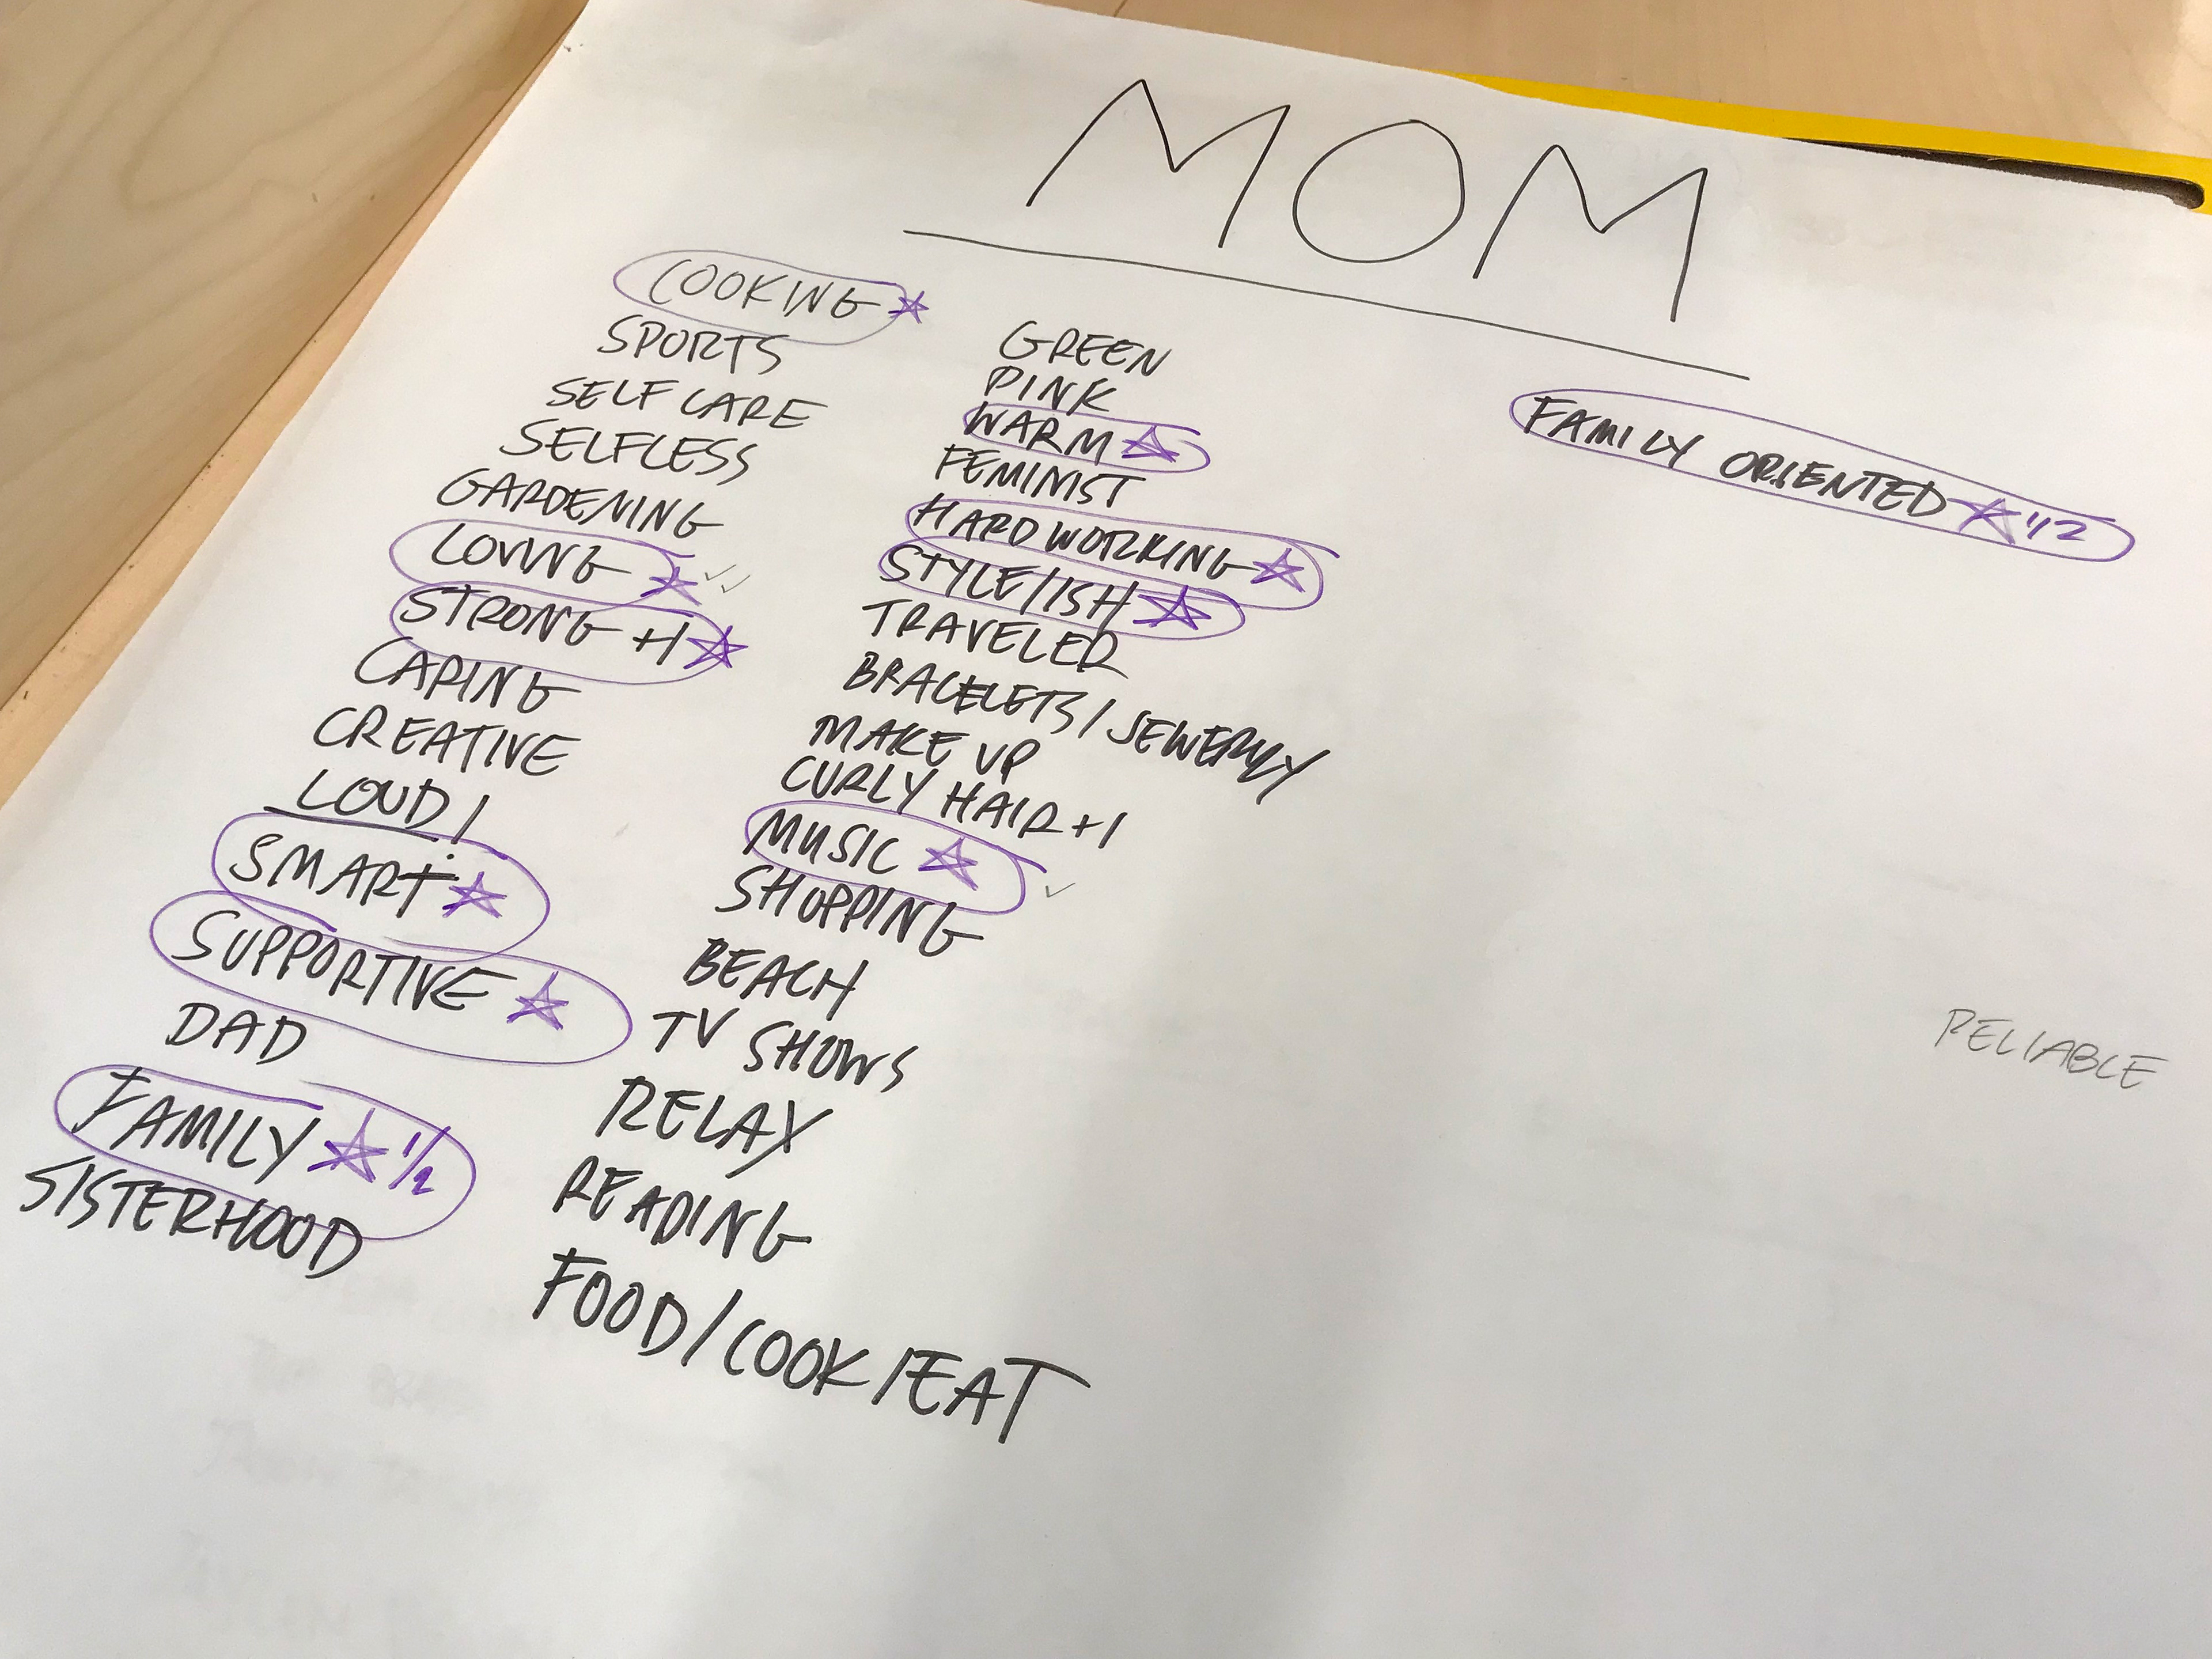 MOM
COOKING
SPORTS
SELF CARE
SELFLESS
GARDENING
LOVING
STRONG +1
CARING
CREATIVE
LOUD!
SMART
SUPPORTIVE
DAD
FAMILY 1/2
SISTERHOOD
GREEN
PINK
WARM
FEMINIST
HARD WORKING
STYLE/ISH
TRAVELER
BRACELETS/JEWERLY
MAKE UP
CURLY HAIR +1
MUSIC
SHOPPING
BEACH
TV SHOWS
RELAX
READING
FOOD/COOK/EAT
FAMILY ORIENTED 1/2
RELIABLE